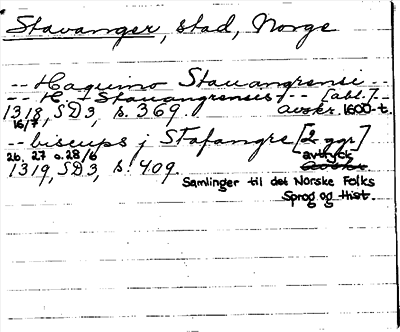 Stavanger, stad, Norge
-- Haquino Stauangrensi --
-- H -- Stauangrenses -- [abl.] --
1318, SD3, s. 369. avskr. 1600-t.
16/7
-- biscups j Stafangre [2 ggr]
26, 27 o. 28/6 avtryck
1319, SD3, s. 409. avskr.
Samlinger til det Norske Folks
Sprog og Hist.